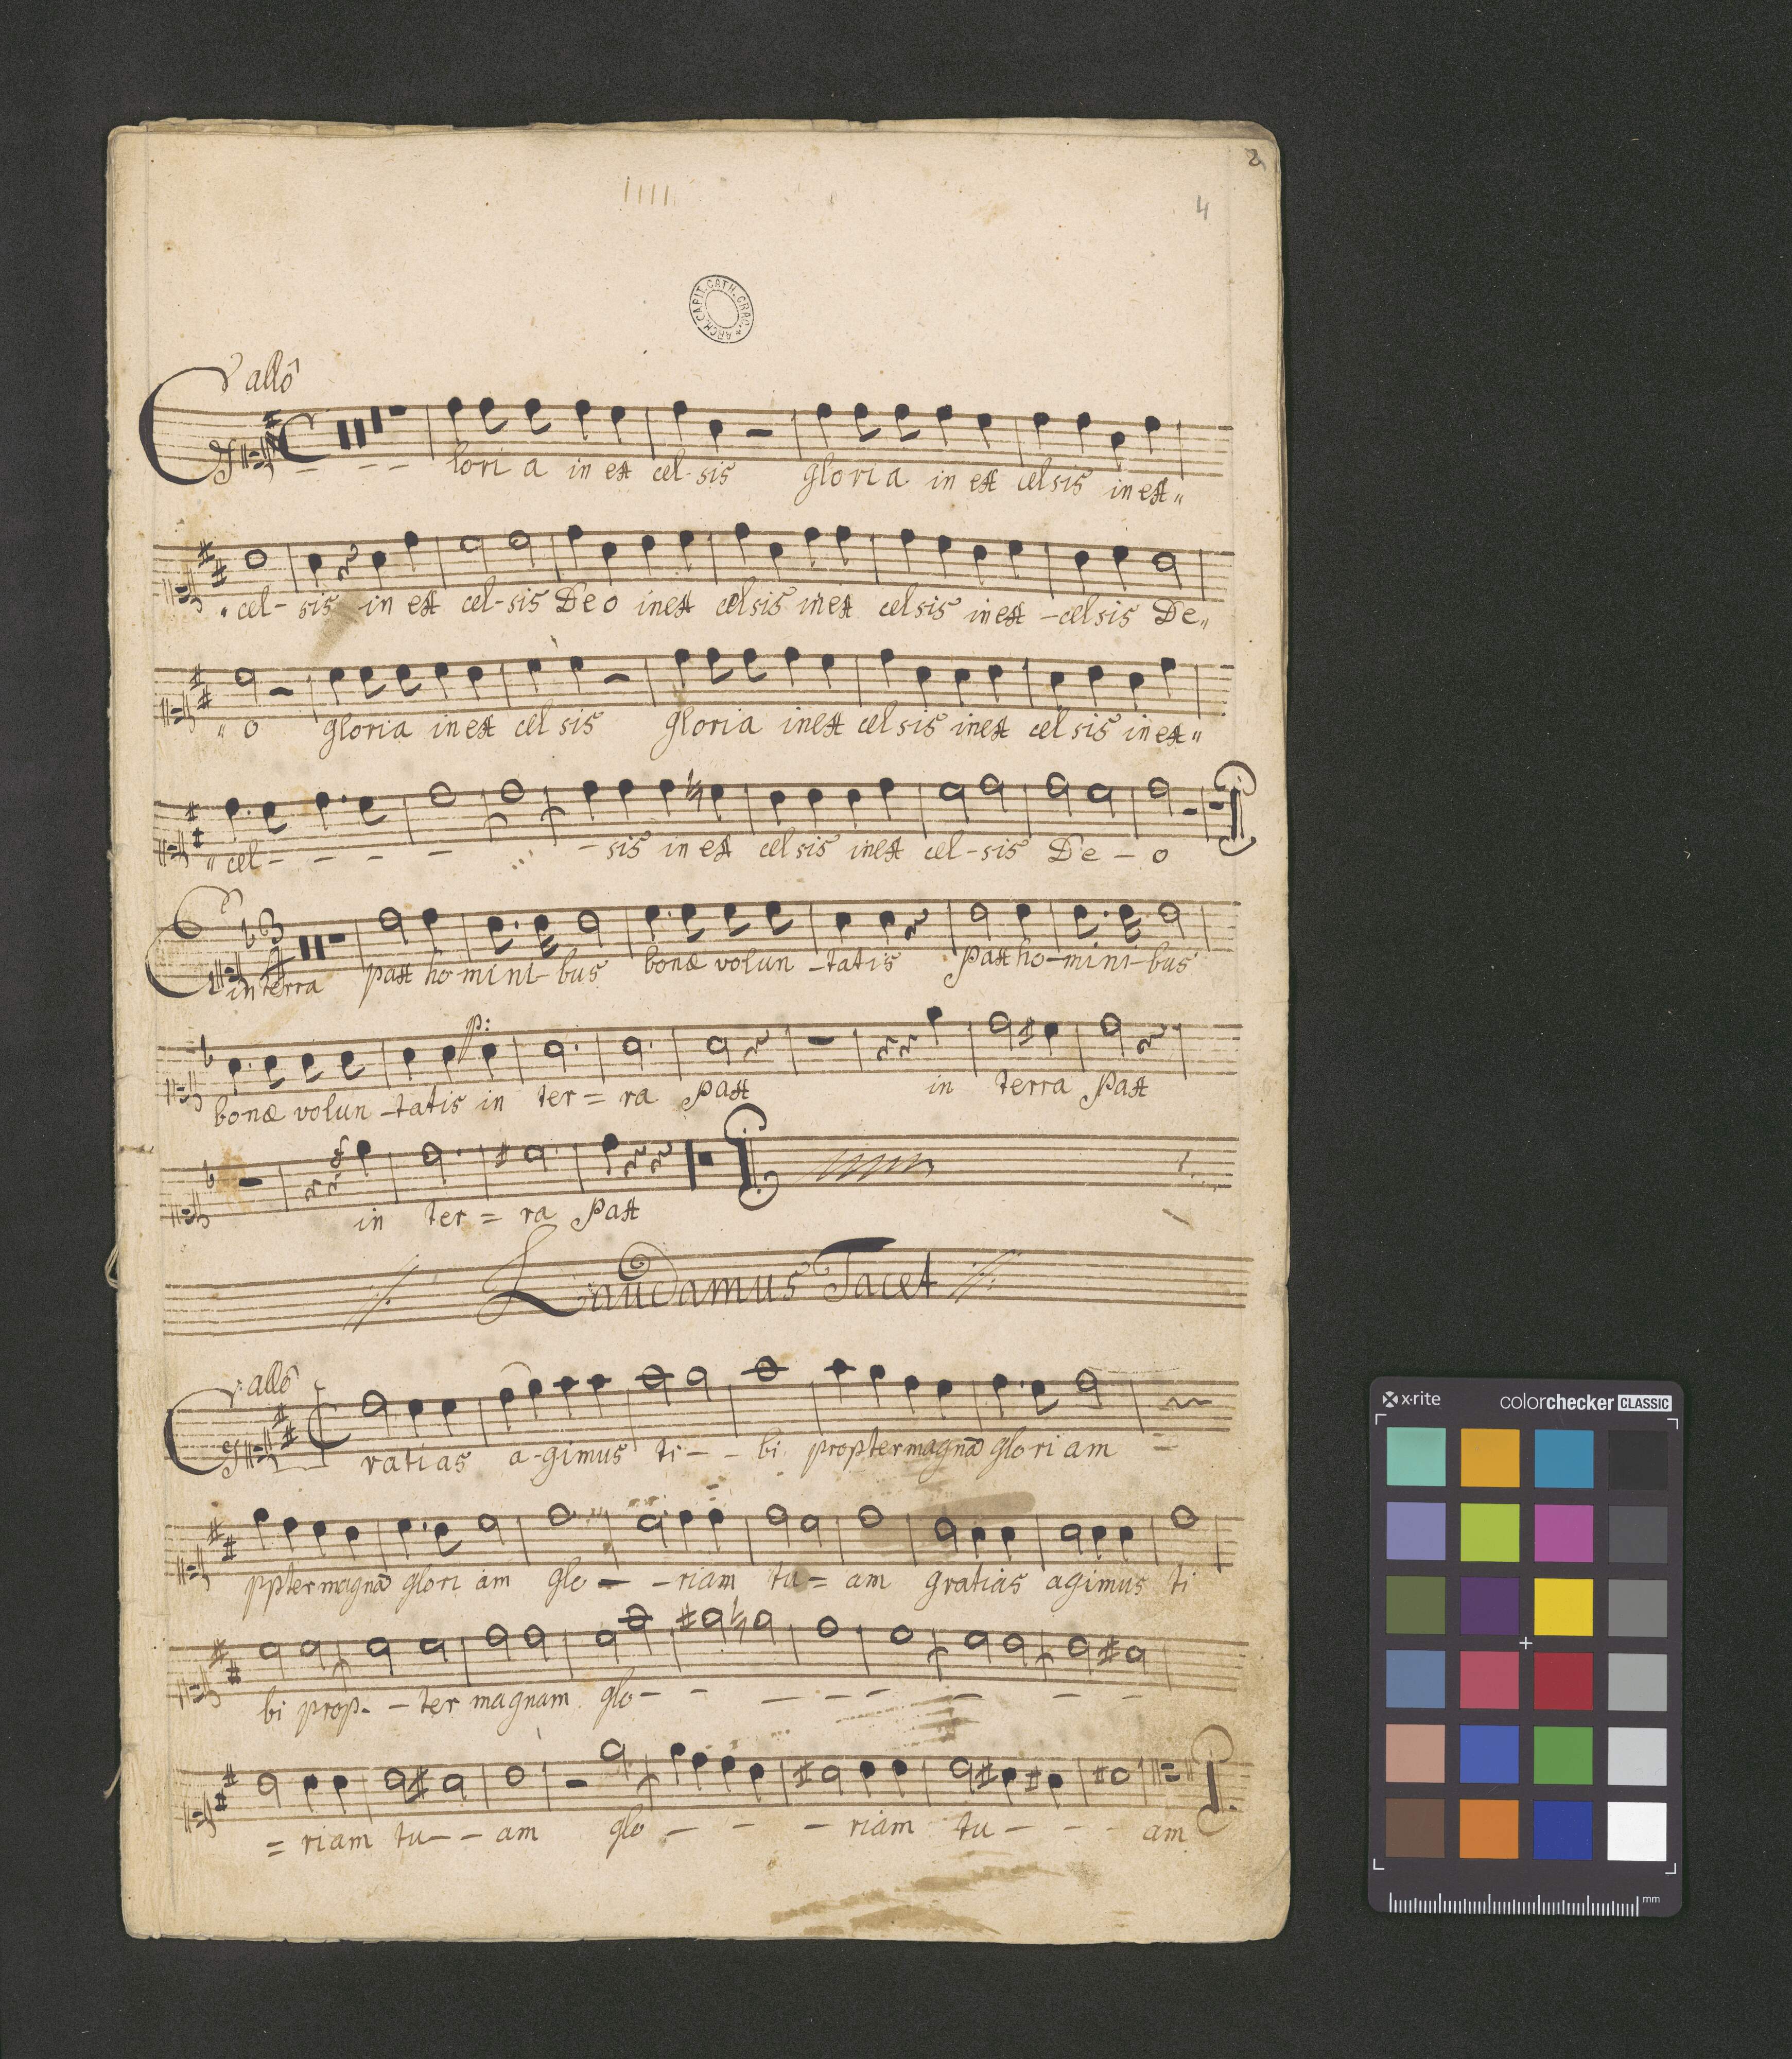 2
4
ARCH. CAPIT. CATH. CRAC.
allô
G - - - lori a in ex cel- sis gloria in ex celsis in ex„
„cel- sis in ex cel-sis Deo in ex celsis in ex celsis in ex -celsis De„
„o gloria in ex cel sis gloria in ex cel sis in ex cel sis in ex„
„cel- - - - - sis in ex cel sis in ex cel-sis De - o
3
in terra pax ho mini-bus bonæ volun -tatis Pax ho-mini-bus
p:
bonæ volun -tatis in ter=ra Pax in terra Pax
f
in ter=ra Pax
Laudamus Tacet
allô
G ratias a-gimus ti- - bi propter magnã gloriam =
ppter magnã gloriam glo- -riam tu=am gratias agimus ti
bi prop- -ter magnam glo- - - - - - - -
=riam tu- -am glo - - - riam tu - - - am
x·rite
colorchecker CLASSIC
mm